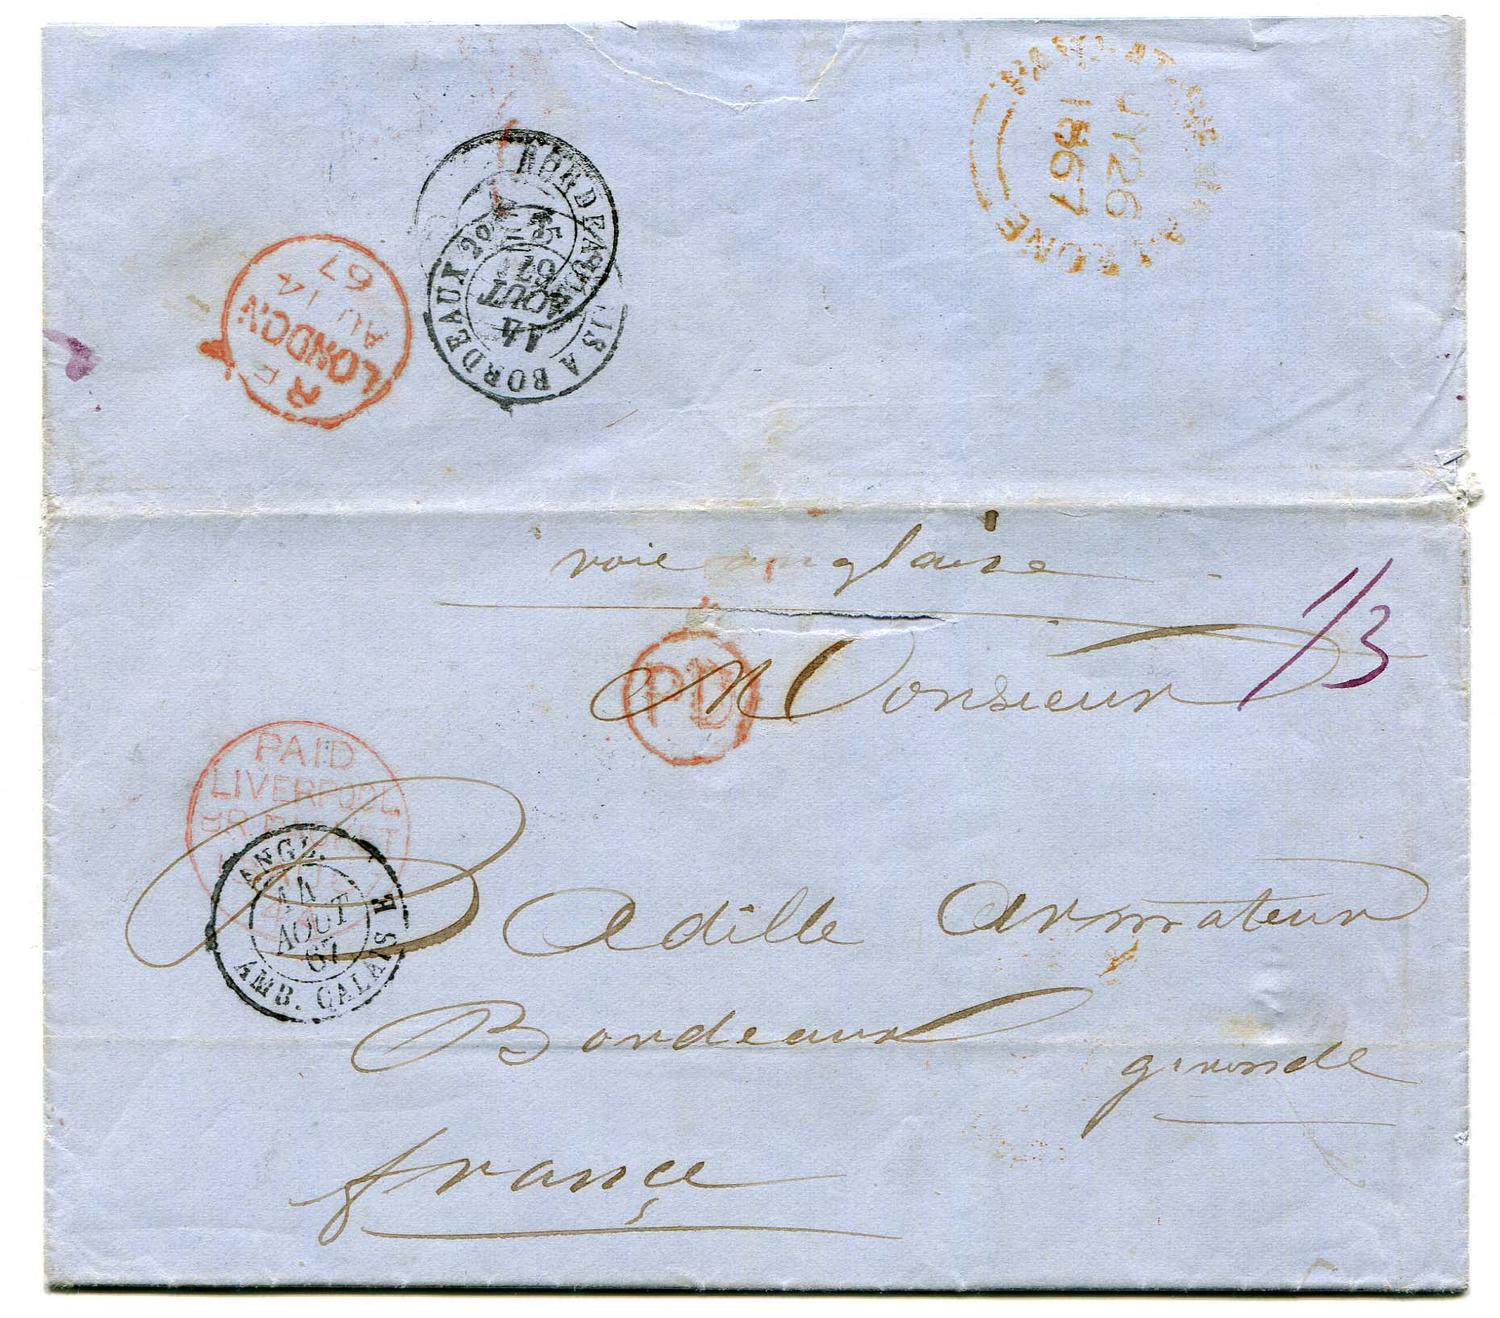 JY 26
1867
BORDEAUX
15
AOUT
67
IS A BORDEAUX 20
14
AOUT
67
RE
LONDON
AU 14
67
voie anglaise
1/3
PD
Monsieur
PAID
LIVERPOOL
BR PACKET
ANGL.
14
AOUT
67
AMB. CALAIS E
B Adille Armateur
Bordeaux
gironde
françe